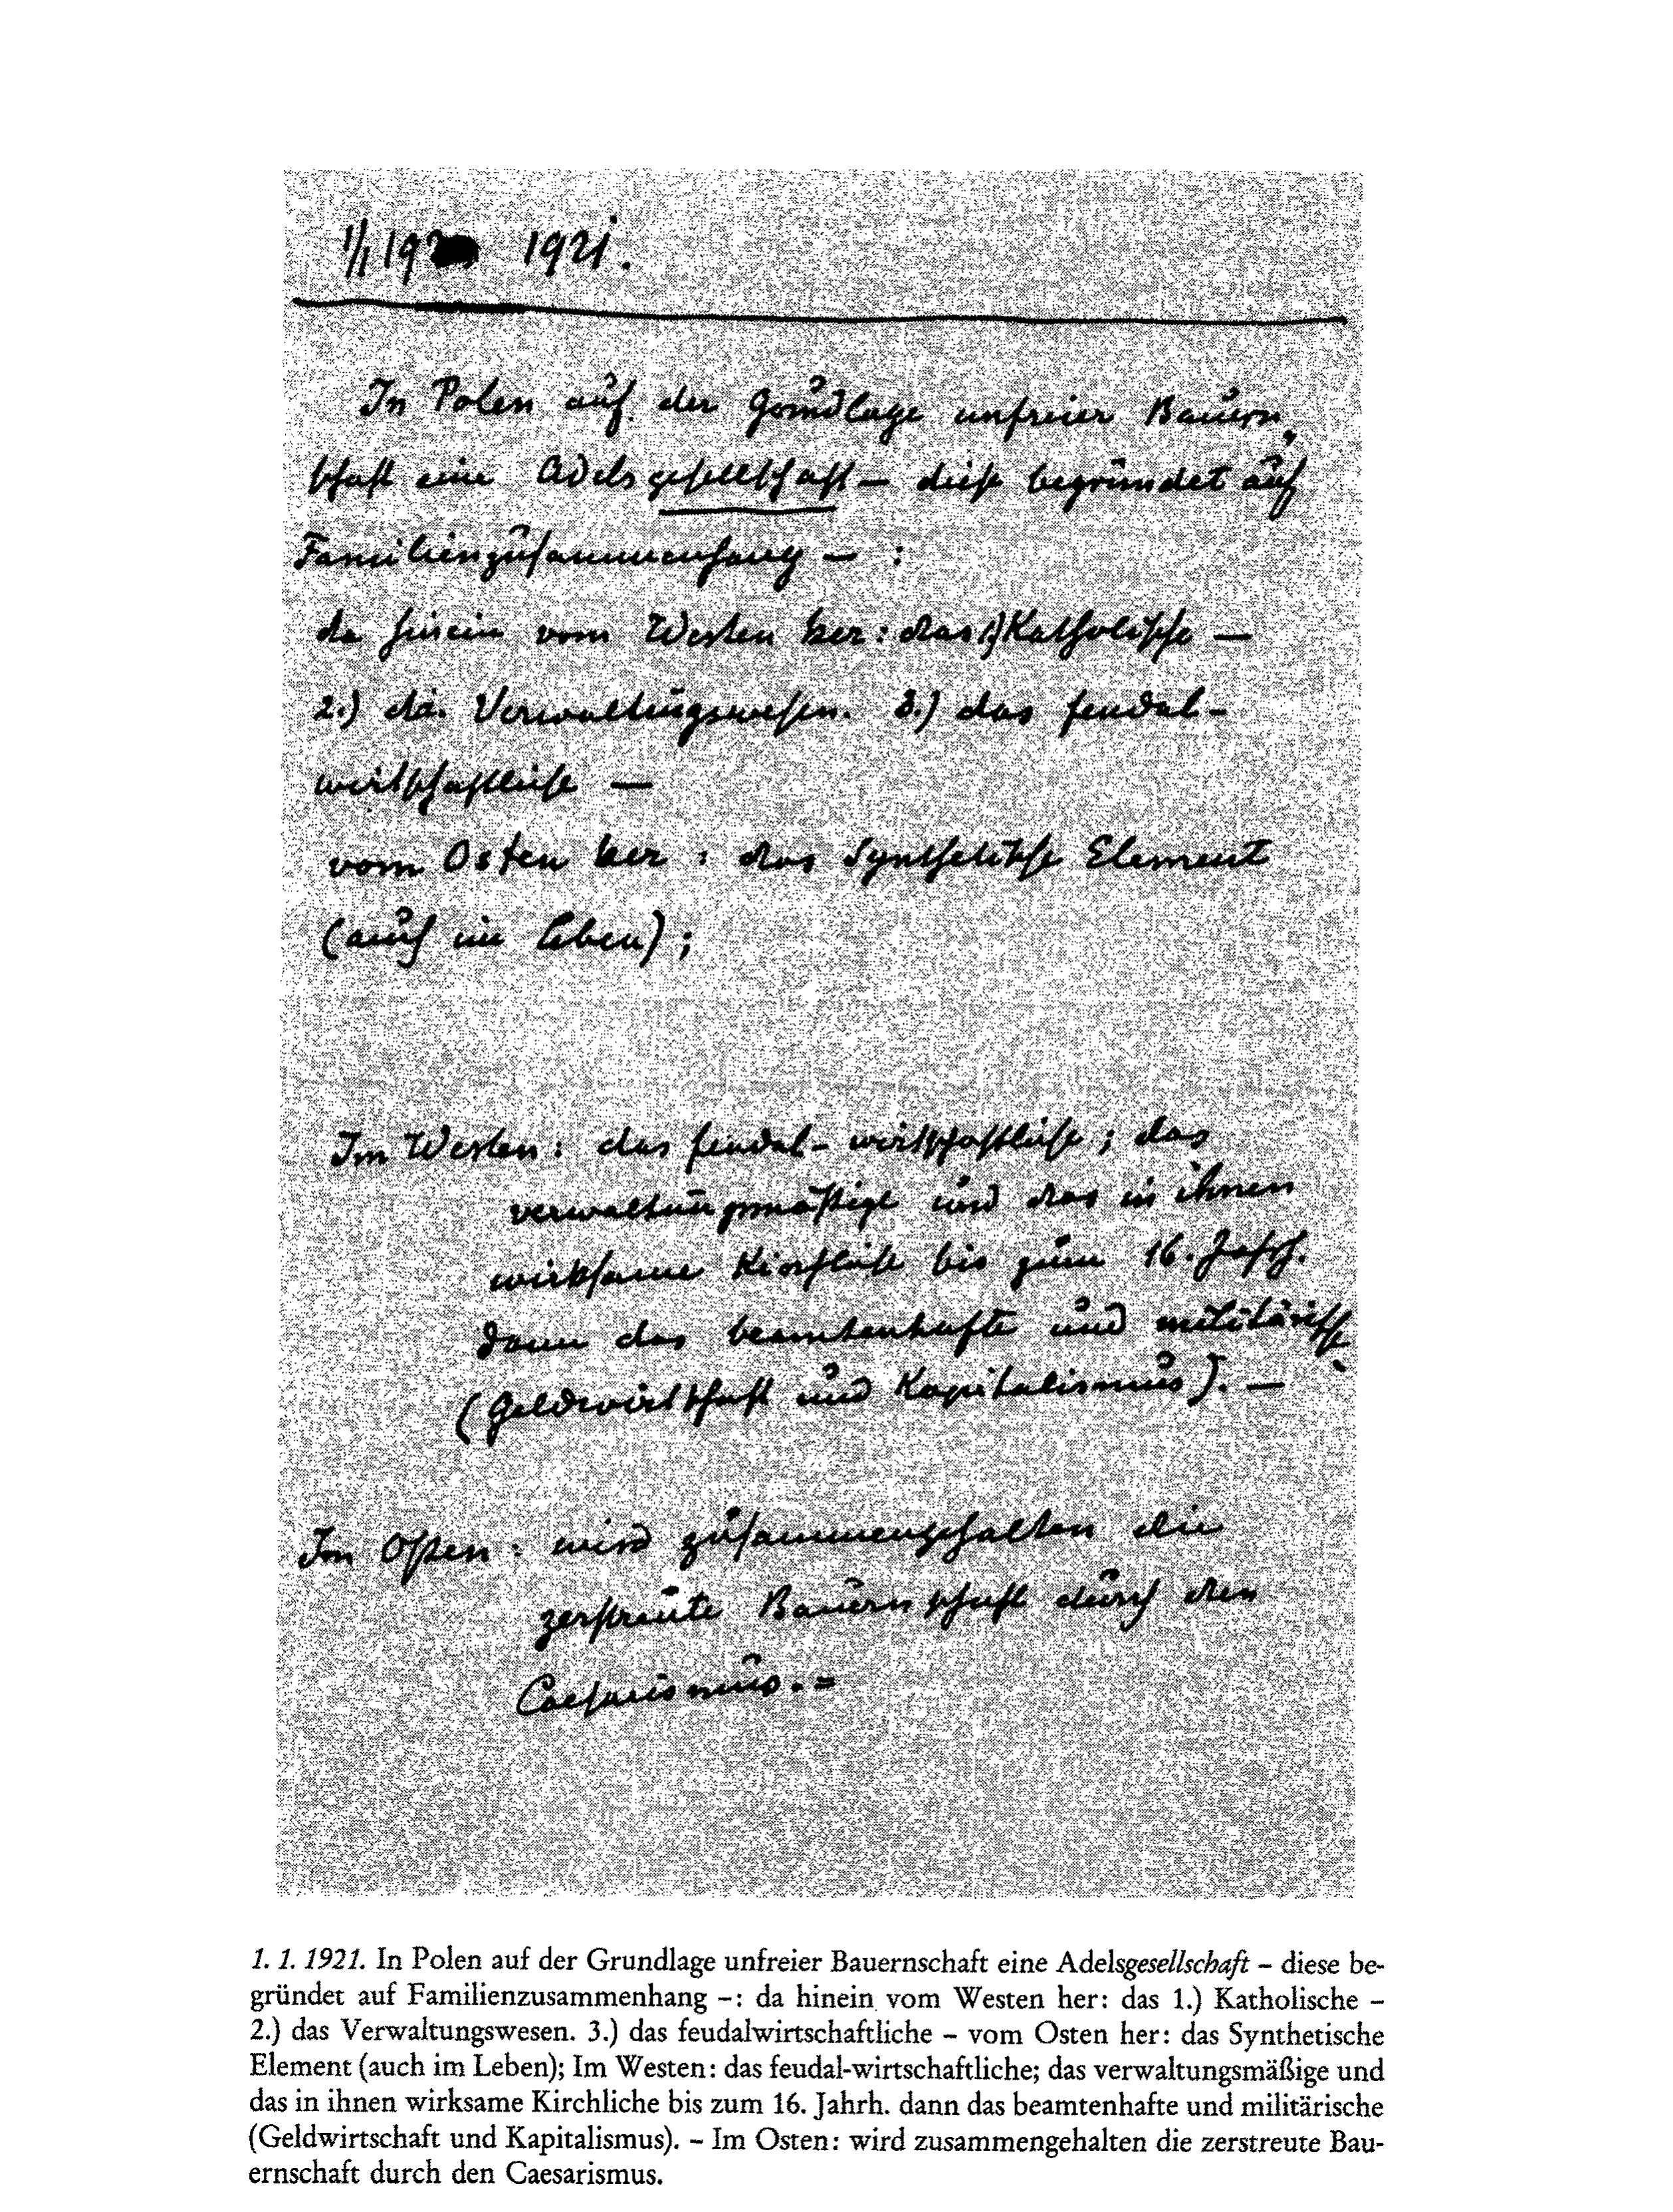 1/1 19 1921.
In Polen auf der Grundlage unfreier Bauern
schaft eine Adelsgesellschaft – diese begründet auf
Familienzusammenhang – :
da hinein vom Westen her : das 1.) Katholische –
2.) das Verwaltungswesen. 3.) das feudal-
wirtschaftliche –
vom Osten her : das Synthetische Element
(auch im Leben) ;
Im Westen : das feudal-wirtschaftliche ; das
verwaltungsmäßige und das in ihnen
wirksame Kirchliche bis zum 16. Jahrh.
dann das beamtenhafte und militärische
(Geldwirtschaft und Kapitalismus). –
Im Osten : wird zusammengehalten die
zerstreute Bauernschaft durch den
Caesarismus. =
1. 1. 1921. In Polen auf der Grundlage unfreier Bauernschaft eine Adelsgesellschaft – diese be-
gründet auf Familienzusammenhang –: da hinein vom Westen her: das 1.) Katholische –
2.) das Verwaltungswesen. 3.) das feudalwirtschaftliche – vom Osten her: das Synthetische
Element (auch im Leben); Im Westen: das feudal-wirtschaftliche; das verwaltungsmäßige und
das in ihnen wirksame Kirchliche bis zum 16. Jahrh. dann das beamtenhafte und militärische
(Geldwirtschaft und Kapitalismus). – Im Osten: wird zusammengehalten die zerstreute Bau-
ernschaft durch den Caesarismus.